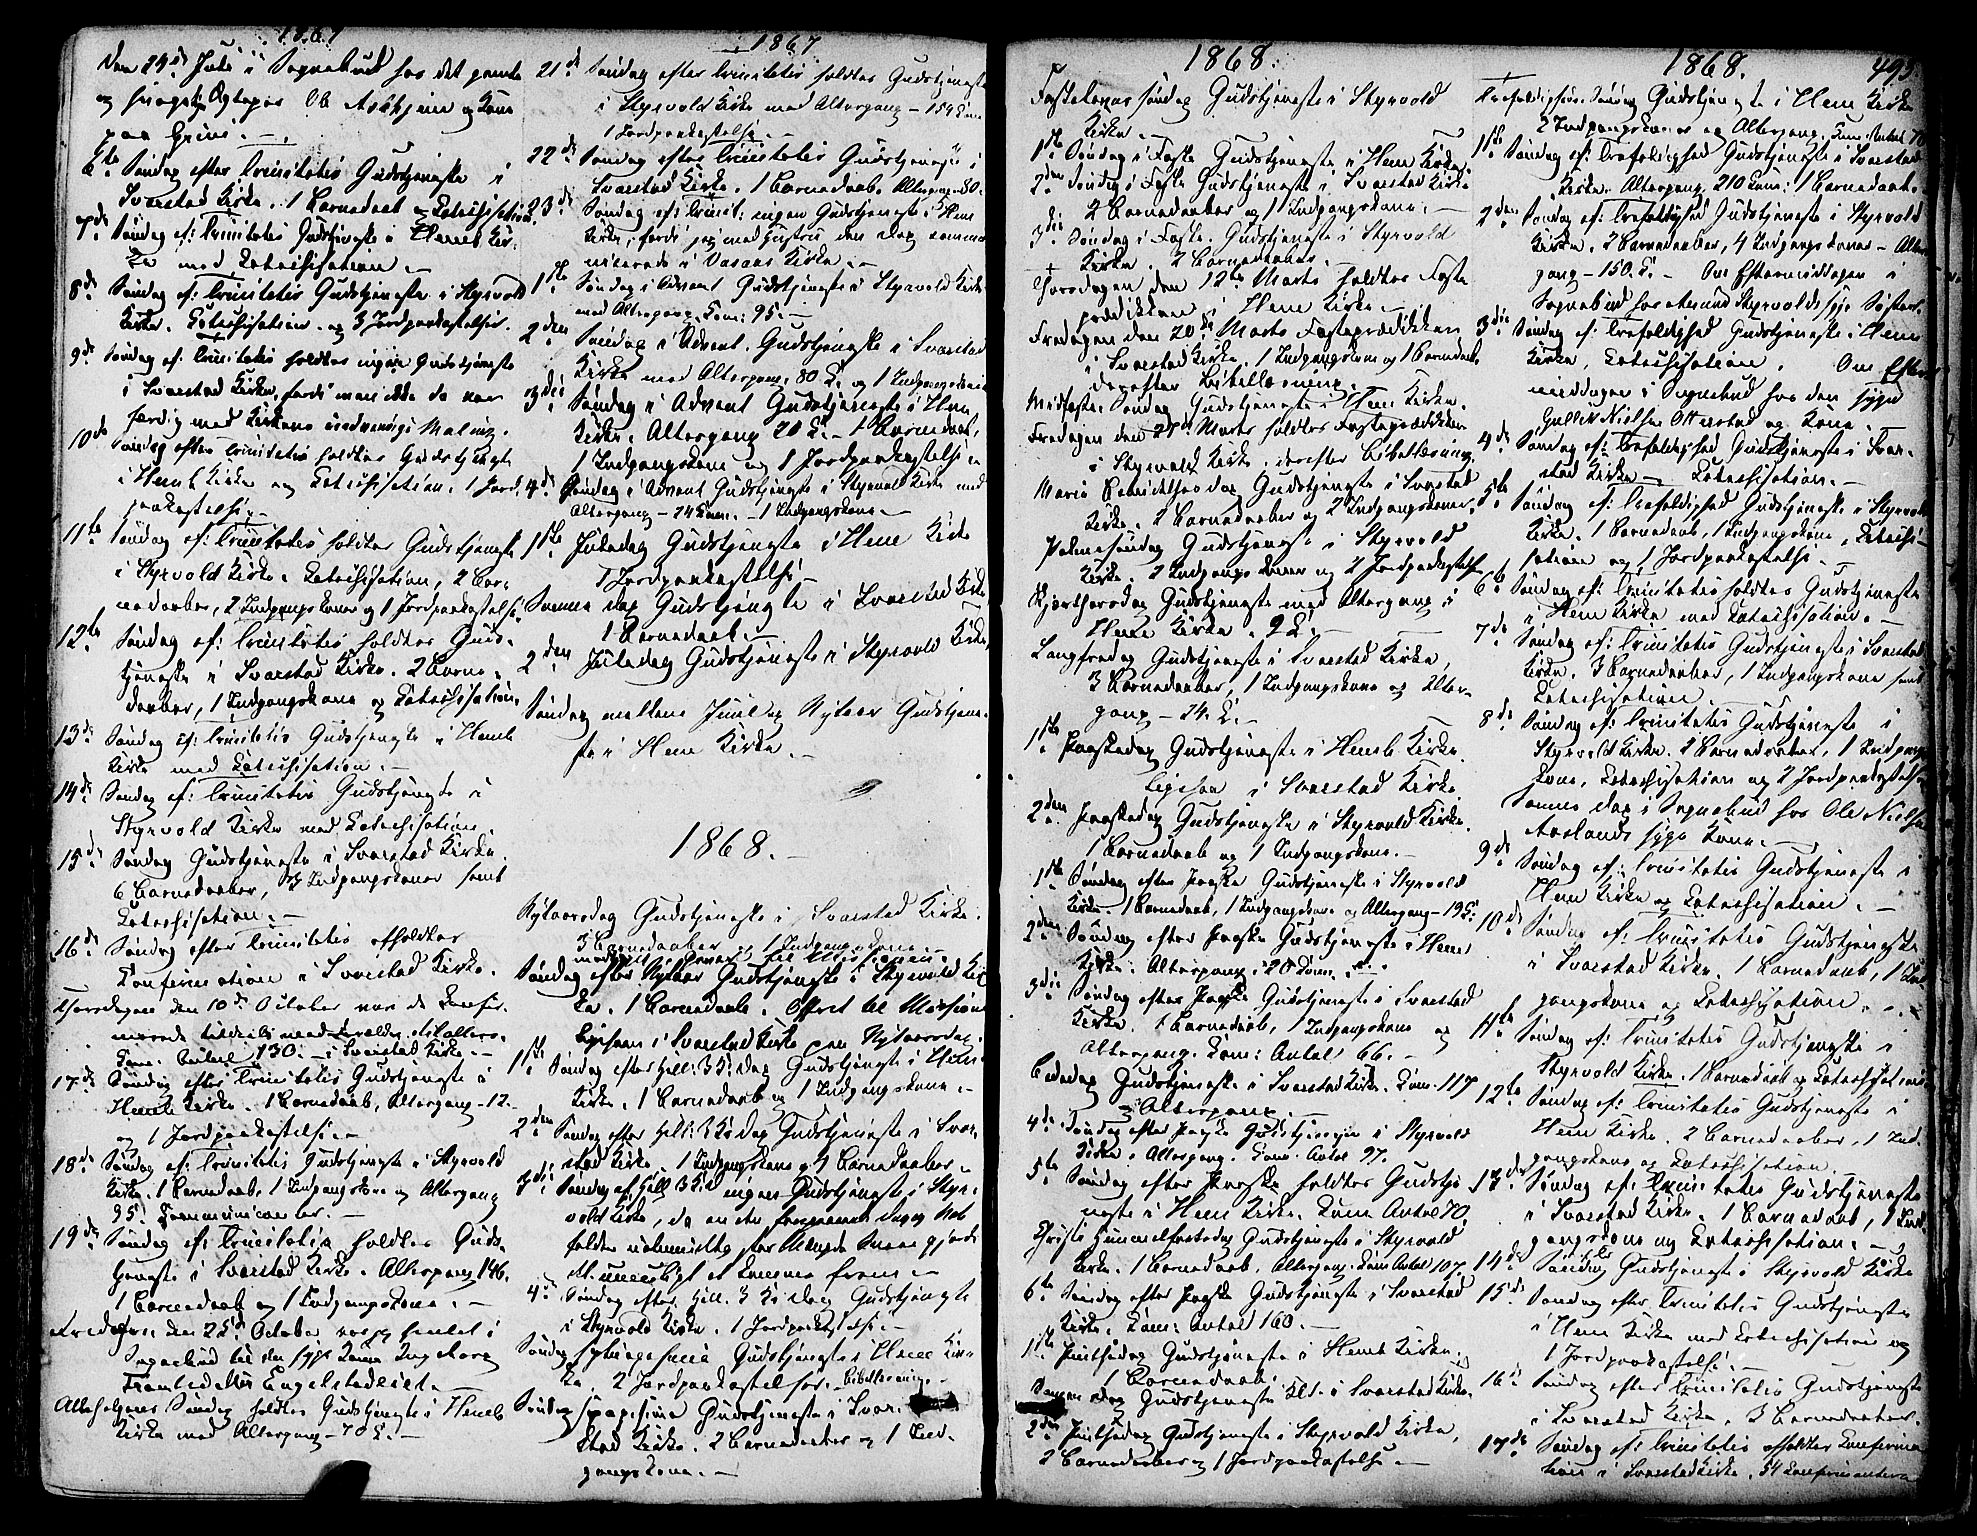 1867
Den 29de Juli i Sognebud hos det gamle
og svage Ægtepar Ole Askhjem og Kone
paa Grini. —
6te Søndag efter Trinitatis Gudstjeneste i
Svarstad Kirke. 1 Barnedaab og Katechisation
7de Søndag ef: Trinitatis Gudstjeneste i Hems Kir-
ke med Katechisation. —
8de Søndag ef: Trinitatis Gudstjeneste i Styrvold
Kirke. Katechisation og 3 Jordpaakastelser.
9de Søndag ef: Trinitatis holdtes ingen Gudstjeneste
i Svarstad Kirke, fordi man ikke da var
færdig med Kirkens indvendige Maling.
10de Søndag efter Trinitatis holdtes Gudstjeneste
i Hems Kirke og Katechisation. 1 Jord-
paakastelse. —
11te Søndag ef: Trinitatis holdtes Gudstjeneste
i Styrvold Kirke. Katechisation, 2 Bar-
nedaaber, 2 Indgangskoner og 1 Jordpaakastelse.
12te Søndag ef: Trinitatis holdtes Guds-
tjeneste i Svarstad Kirke. 2 Barne-
daaber, 1 Indgangskone og Katechisation.
13de Søndag ef: Trinitatis Gudstjeneste i Hems
Kirke med Katechisation. —
14de Søndag ef: Trinitatis Gudstjeneste i
Styrvold Kirke med Katechisation.
15de Søndag Gudstjeneste i Svarstad Kirke.
6 Barnedaaber, 3 Indgangskoner samt
Katechisation. —
16de Søndag efter Trinitatis afholdtes
Confirmation i Svarstad Kirke.
Thorsdagen den 10de October var de Confir-
merede til Alters.
Com: Antal 130. — i Svarstad Kirke. —
17de Søndag efter Trinitatis Gudstjeneste i
Hems Kirke. 1 Barnedaab, Altergang — 12.
og 1 Jordpaakastelse. —
18de Søndag ef: Trinitatis Gudstjeneste i Styrvold
Kirke. 1 Barnedaab, 1 Indgangskone og Altergang
95 Communicanter. —
19de Søndag ef: Trinitatis holdtes Guds-
tjeneste i Svarstad Kirke. Altergang 146.
1 Barnedaab og 1 Indgangskone. —
Fredagen den 25de October var jeg hentet i
Sognebud til den syge Kone Ingeborg
Engelstadeiet. —
Allehelgens Søndag holdtes Gudstjeneste i Hems
Kirke med Altergang — 70 C. —
1867
21de Søndag efter Trinitatis holdtes Gudstjeneste
i Styrvold Kirke med Altergang — 154 Com
1 Jordpaakastelse. —
22de Søndag efter Trinitatis Gudstjeneste i
Svarstad Kirke. 1 Barnedaab. Altergang 80.
23de Søndag ef: Trinit: ingen Gudstjeneste i Hem
Kirke, fordi jeg med Hustru den Dag commu-
nicerede i Vasaas Kirke. —
1ste Søndag i Advent Gudstjeneste i Styrvold Kirke
med Altergang. Com: 95. —
2den Søndag i Advent. Gudstjeneste i Svarstad
Kirke med Altergang. 80 C. og 1 Indgangskone
3die Søndag i Advent Gudstjeneste i Hem
Kirke. Altergang 20 C. — 1 Barnedaab,
1 Indgangskone og 1 Jordpaakastelse
4de Søndag i Advent Gudstjeneste i Styrvold Kirke med
Altergang — 24 Com. — 1 Indgangskone. —
1ste Juledag Gudstjeneste i Hem Kirke
1 Jordpaakastelse —
Samme Dag Gudstjeneste i Svarstad Kirke
1 Barnedaab. —
2den Juledag Gudstjeneste i Styrvold Kirke.
Søndag mellem Juul og Nytaar Gudstjene-
ste i Hem Kirke. —
1868. —
Nytaarsdag Gudstjeneste i Svarstad Kirke.
3 Barnedaaber og 1 Indgangskone. —
til Missionen. —
Søndag efter Nytaar Gudstjeneste i Styrvold Kir-
ke. 1 Barnedaab. Offret til Mission
ligesom i Svarstad Kirke paa Nytaarsdag.
1ste Søndag efter Hell: 3 K: dag Gudstjeneste i Hems
Kirke. 1 Barnedaab og 1 Indgangskone. —
2den Søndag efter Hell: 3 K: dag Gudstjeneste i Svar-
stad Kirke. 1 Indgangskone og 4 Barnedaaber —
3die Søndag ef. Hell. 3 K: d ingen Gudstjeneste i Styr-
vold Kirke, da en den foregaaende Dag og Nat
falden ualmindelig stor Mængde Snee gjorde
det umueligt at komme frem. —
4de Søndag efter Hell. 3 K: dag Gudstjeneste
i Styrvold Kirke. 1 Jordpaakastelse. —
Søndag septuagesima Gudstjeneste i Hem Kir-
ke. 2 Jordpaakastelser. Bibellæsning. —
Søndag sexagesima Gudstjeneste i Svar-
stad Kirke. 2 Barnedaaber og 1 Ind-
gangskone. —
1868.
Fastelavns Søndag Gudstjeneste i Styrvold
Kirke. —
1ste Søndag i Faste Gudstjeneste i Hem Kirke
2den Søndag i Faste Gudstjeneste i Svarstad Kirke
2 Barnedaaber og 1 Indgangskone. —
3die Søndag i Faste. Gudstjeneste i Styrvold
Kirke. 2 Barnedaaber.
Thorsdagen den 12te Marts holdtes Faste-
prædiken i Hem Kirke. —
Fredagen den 20de Marts Fasteprædiken
i Svarstad Kirke. 1 Indgangskone og 1 Barnedaab,
derefter Bibellæsning.
Midfaste Søndag Gudstjeneste i Hem Kirke.
Fredagen den 27de Marts holdtes Fasteprædiken
i Styrvold Kirke, derefter Bibellæsning
Mariæ Bebudelses Dag Gudstjeneste i Svarstad
Kirke. 2 Barnedaaber og 2 Indgangskoner.
Palmesøndag Gudstjeneste i Styrvold
Kirke. 2 Indgangskoner og 2 Jordpaakastelser
Skjærthorsdag Gudstjeneste med Altergang i
Hems Kirke. 9 C. —
Langfredag Gudstjeneste i Svarstad Kirke,
3 Barnedaaber, 1 Indgangskone og Alter-
gang — 24. C. —
1ste Paaskedag Gudstjeneste i Hems Kirke.
Ligesaa i Svarstad Kirke.
2den Paaskedag Gudstjeneste i Styrvold Kirke.
1 Barnedaab og 1 Indgangskone. —
1ste Søndag efter Paaske Gudstjeneste i Styrvold
Kirke. 1 Barnedaab, 1 Indgangskone og Altergang — 195:
2den Søndag efter Paaske Gudstjeneste i Hem
Kirke: Altergang: 20 Com. —
3die Søndag efter Paaske Gudstjeneste i Svarstad
Kirke. 1 Barnedaab, 1 Indgangskone og
Altergang. Com: Antal 66. —
Bededag Gudstjeneste i Svarstad Kirke. Com. 117
Altergang. —
4de Søndag efter Paaske Gudstjeneste i Styrvold
Kirke. Altergang. Com. Antal 97.
5te Søndag efter Paaske holdtes Gudstje-
neste i Hem Kirke. Com Antal 70
Christi Himmelfartsdag Gudstjeneste i Styrvold
Kirke. 1 Barnedaab. Altergang. Com Antal 107
6te Søndag efter Paaske Gudstjeneste i Svarstad
Kirke. Com: Antal 160. —
1ste Pintsedag Gudstjeneste i Hems Kirke.
1 Barnedaab.
Samme Dag Gudstjeneste i Svarstad Kirke.
2den Pintsedag Gudstjeneste i Styrvold Kirke,
2 Barnedaaber og 1 Jordpaakastelse. —
1868. 493
Trefoldigheds Søndag Gudstjeneste i Hem Kirke
2 Indgangskoner og Altergang. Com: Antal 70
1ste Søndag ef: Trefoldighed Gudstjeneste i Svarstad
Kirke. Altergang, 210 Com: 1 Barnedaab.
2den Søndag ef: Trefoldighed Gudstjeneste i Styrvold
Kirke. 2 Barnedaaber, 4 Indgangskoner — Alter-
gang — 150. C. — Om Eftermiddagen i
Sognebud hos Styrvolds syge Søster.
3die Søndag ef: Trefoldighed Gudstjeneste i Hem
Kirke, Katechisation. Om Efter-
middagen i Sognebud hos den syge
Gullik Nielsen Otterstad og Kone.
4de Søndag ef: Trefoldighed Gudstjeneste i Svar-
stad Kirke — Katechisation. —
5te Søndag ef: Trefoldighed Gudstjeneste i Styrvold
Kirke. 1 Barnedaab, 1 Indgangskone, Katechi-
sation og 1 Jordpaakastelse. —
6te Søndag ef: Trinitatis holdtes Gudstjeneste
i Hem Kirke med Katechisation. —
7de Søndag ef: Trinitatis Gudstjeneste i Svarstad
Kirke. 3 Barnedaaber, 1 Indgangskone samt
Katechisation.
8de Søndag ef: Trinitatis Gudstjeneste i
Styrvold Kirke. 2 Barnedaaber, 1 Indgangs-
kone, Katechisation og 2 Jordpaakastelser
Samme Dag i Sognebud hos Ole Nielsen
Aaslands syge Kone. —
9de Søndag ef: Trinitatis Gudstjeneste i
Hem Kirke og Katechisation. —
10de Søndag ef: Trinitatis Gudstjeneste
i Svarstad Kirke. 1 Barnedaab, 1 Ind-
gangskone og Katechisation.
11te Søndag ef: Trinitatis Gudstjeneste i
Styrvold Kirke. 1 Barnedaab og Katechisation
12te Søndag ef: Trinitatis Gudstjeneste i
Hem Kirke. 2 Barnedaaber, 1 Ind-
gangskone og Katechisation. —
13de Søndag ef: Trinitatis Gudstjeneste
i Svarstad Kirke. 1 Barnedaab, 1 Ind-
gangskone og Katechisation. —
14de Søndag Gudstjeneste i Styrvold Kirke
15de Søndag efter Trinitatis Gudstjeneste
i Hem Kirke med Katechisation og
1 Jordpaakastelse. —
16de Søndag efter Trinitatis Gudstjeneste
i Svarstad Kirke, 3 Barnedaaber.
17de Søndag ef: Trinitatis afholdtes Confirma-
tion i Svarstad Kirke. 54 Confirmanter